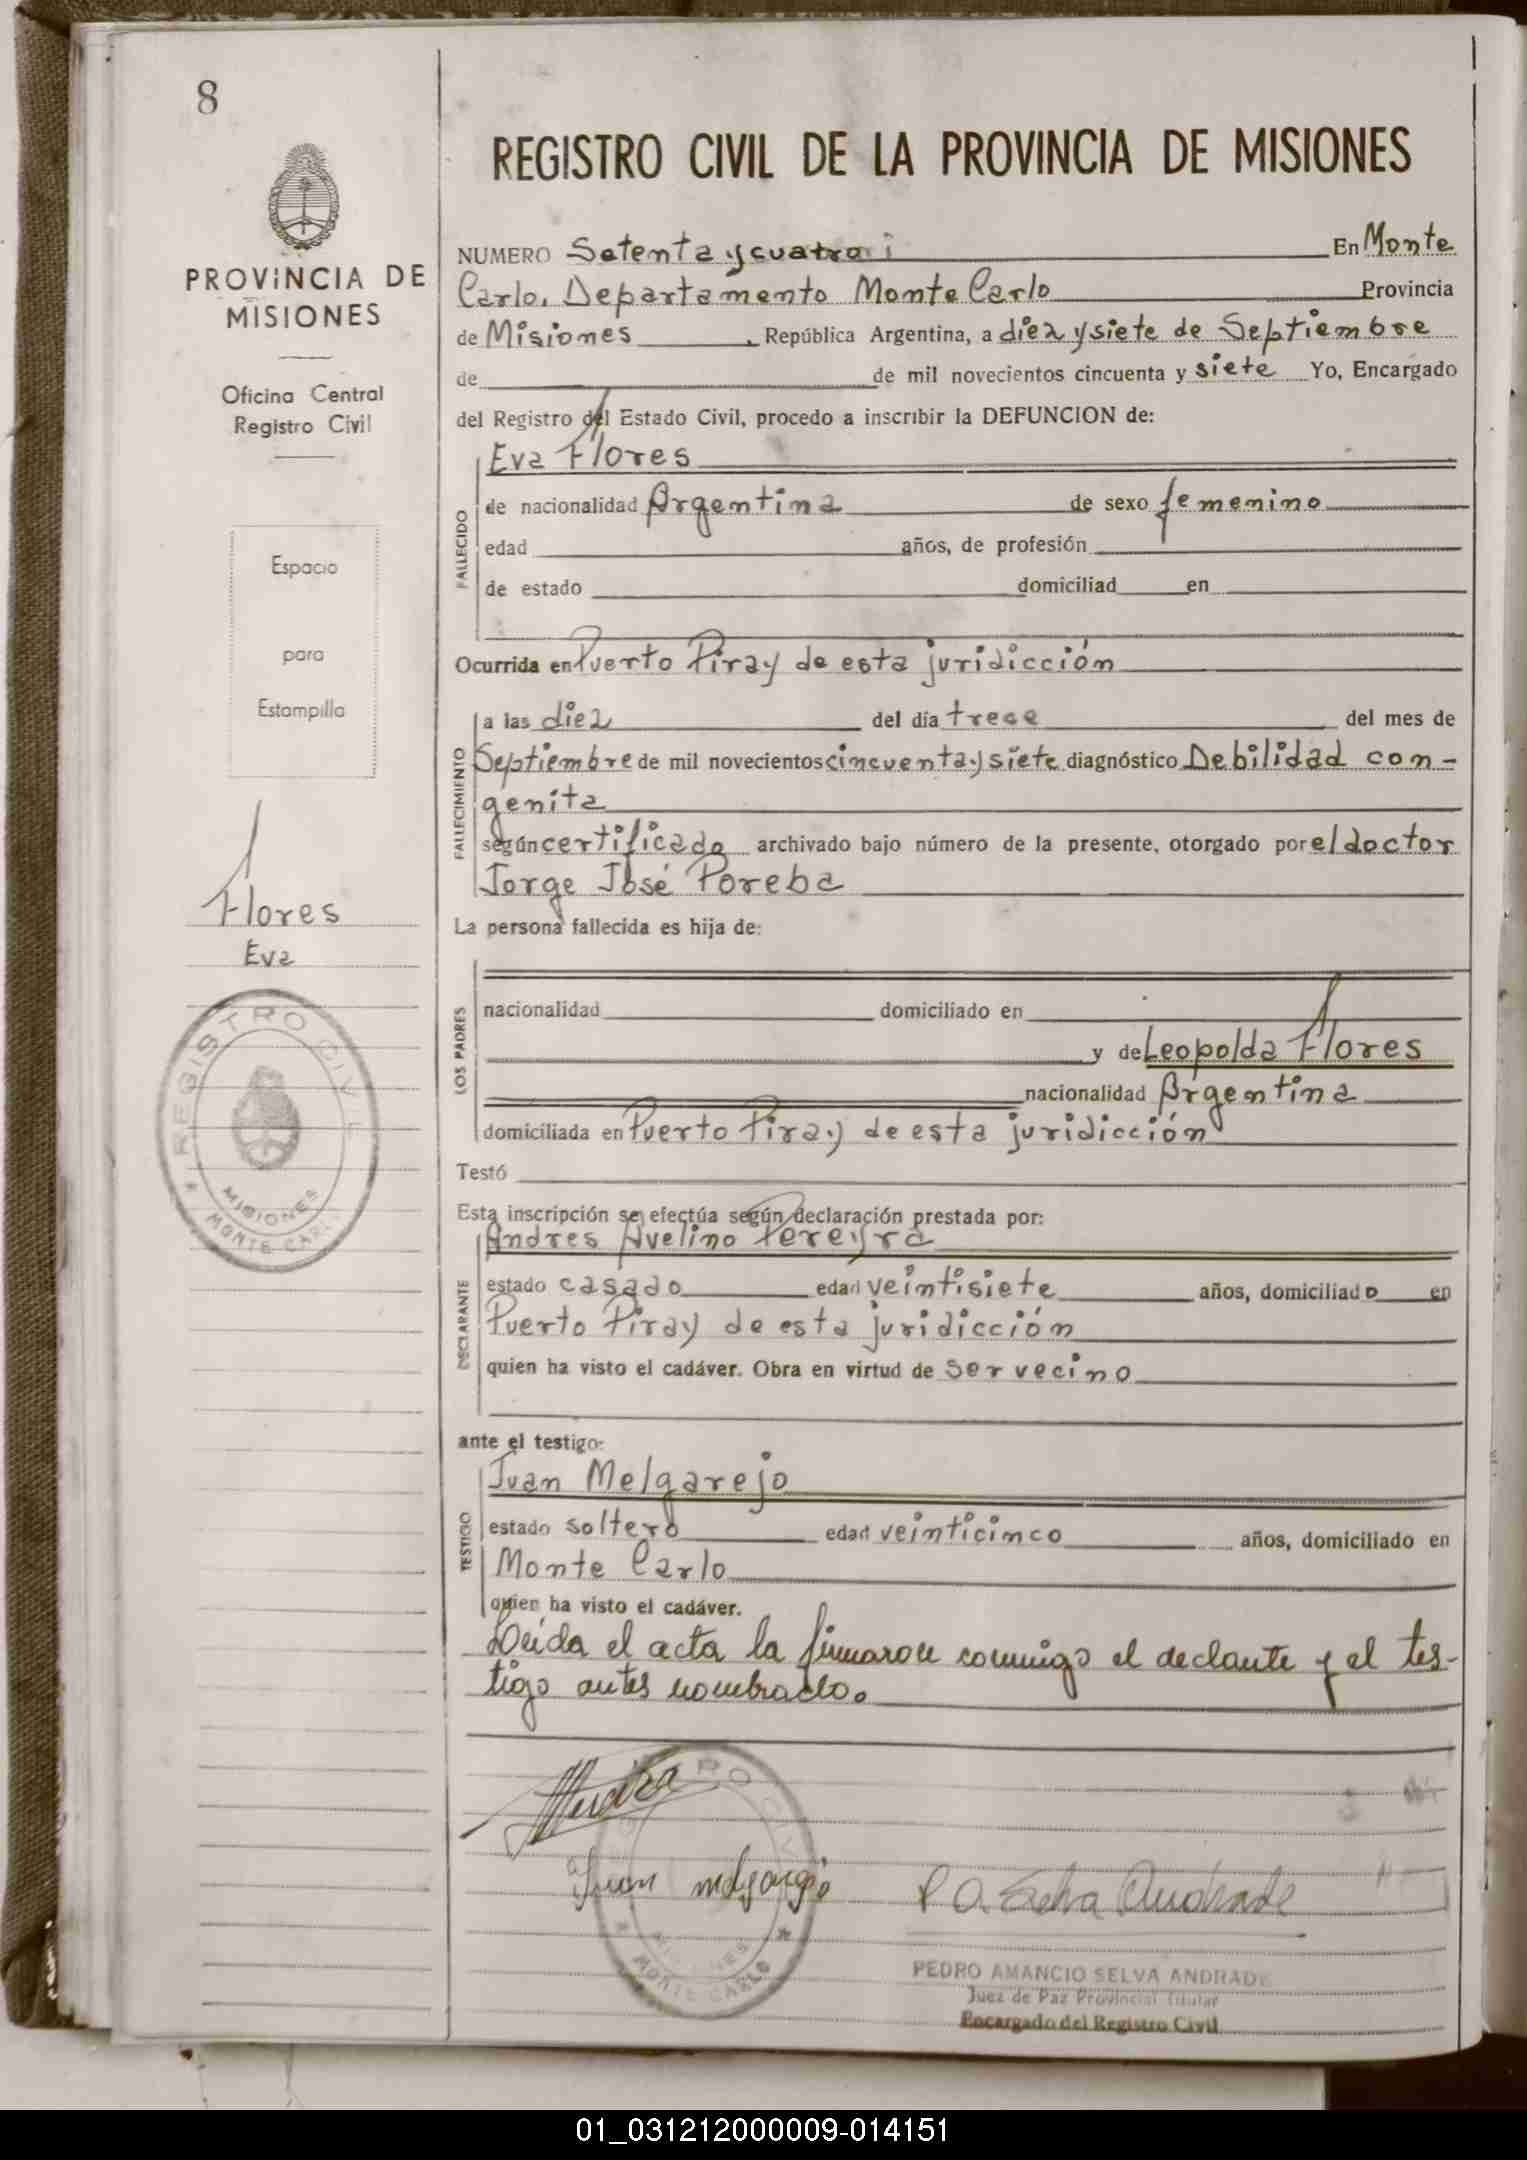 8
PROVINCIA DE
MISIONES
Oficina Central
Registro Civil
Espacio
para
Estampilla
Flores
Eva
REGISTRO CIVIL
MISIONES
MONTE CARLO
REGISTRO CIVIL DE LA PROVINCIA DE MISIONES
NUMERO Setenta y cuatro En Monte
Carlo, Departamento Monte Carlo Provincia
de Misiones, República Argentina, a diez y siete de Septiembre
de de mil novecientos cincuenta y siete Yo, Encargado
del Registro del Estado Civil, procedo a inscribir la DEFUNCION de:
Eva Flores
FALLECIDO
de nacionalidad Argentina de sexo femenino
edad años, de profesión
de estado domiciliad en
Ocurrida en Puerto Piray de esta juridicción
FALLECIMIENTO
a las diez del día trece del mes de
Septiembre de mil novecientos cincuenta y siete diagnóstico Debilidad con-
genita
según certificado archivado bajo número de la presente, otorgado por el doctor
Jorge José Poreba
La persona fallecida es hija de:
LOS PADRES
nacionalidad domiciliado en
y de Leopolda Flores
nacionalidad Argentina
domiciliada en Puerto Piray de esta juridicción
Testó
Esta inscripción se efectúa según declaración prestada por:
Andres Avelino Pereyra
DECLARANTE
estado casado edad veintisiete años, domiciliado en
Puerto Piray de esta juridicción
quien ha visto el cadáver. Obra en virtud de ser vecino
ante el testigo:
Juan Melgarejo
TESTIGO
estado soltero edad veinticinco años, domiciliado en
Monte Carlo
quien ha visto el cadáver.
Leida el acta la firmaron conmigo el declante y el tes-
tigo antes nombrado.
Juan melgarejo
P A. Selva Andrade
MISIONES
MONTE CARLO
PEDRO AMANCIO SELVA ANDRADE
Juez de Paz Provincial Titular
Encargado del Registro Civil
01_031212000009-014151